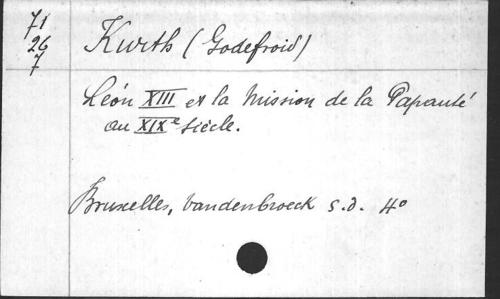 71
26
7
Kurth (Godefroid)
Léon XIII et la Mission de la Papauté
au XIXe Siècle.
Bruxelles, Vandenbroeck s.d. 4o